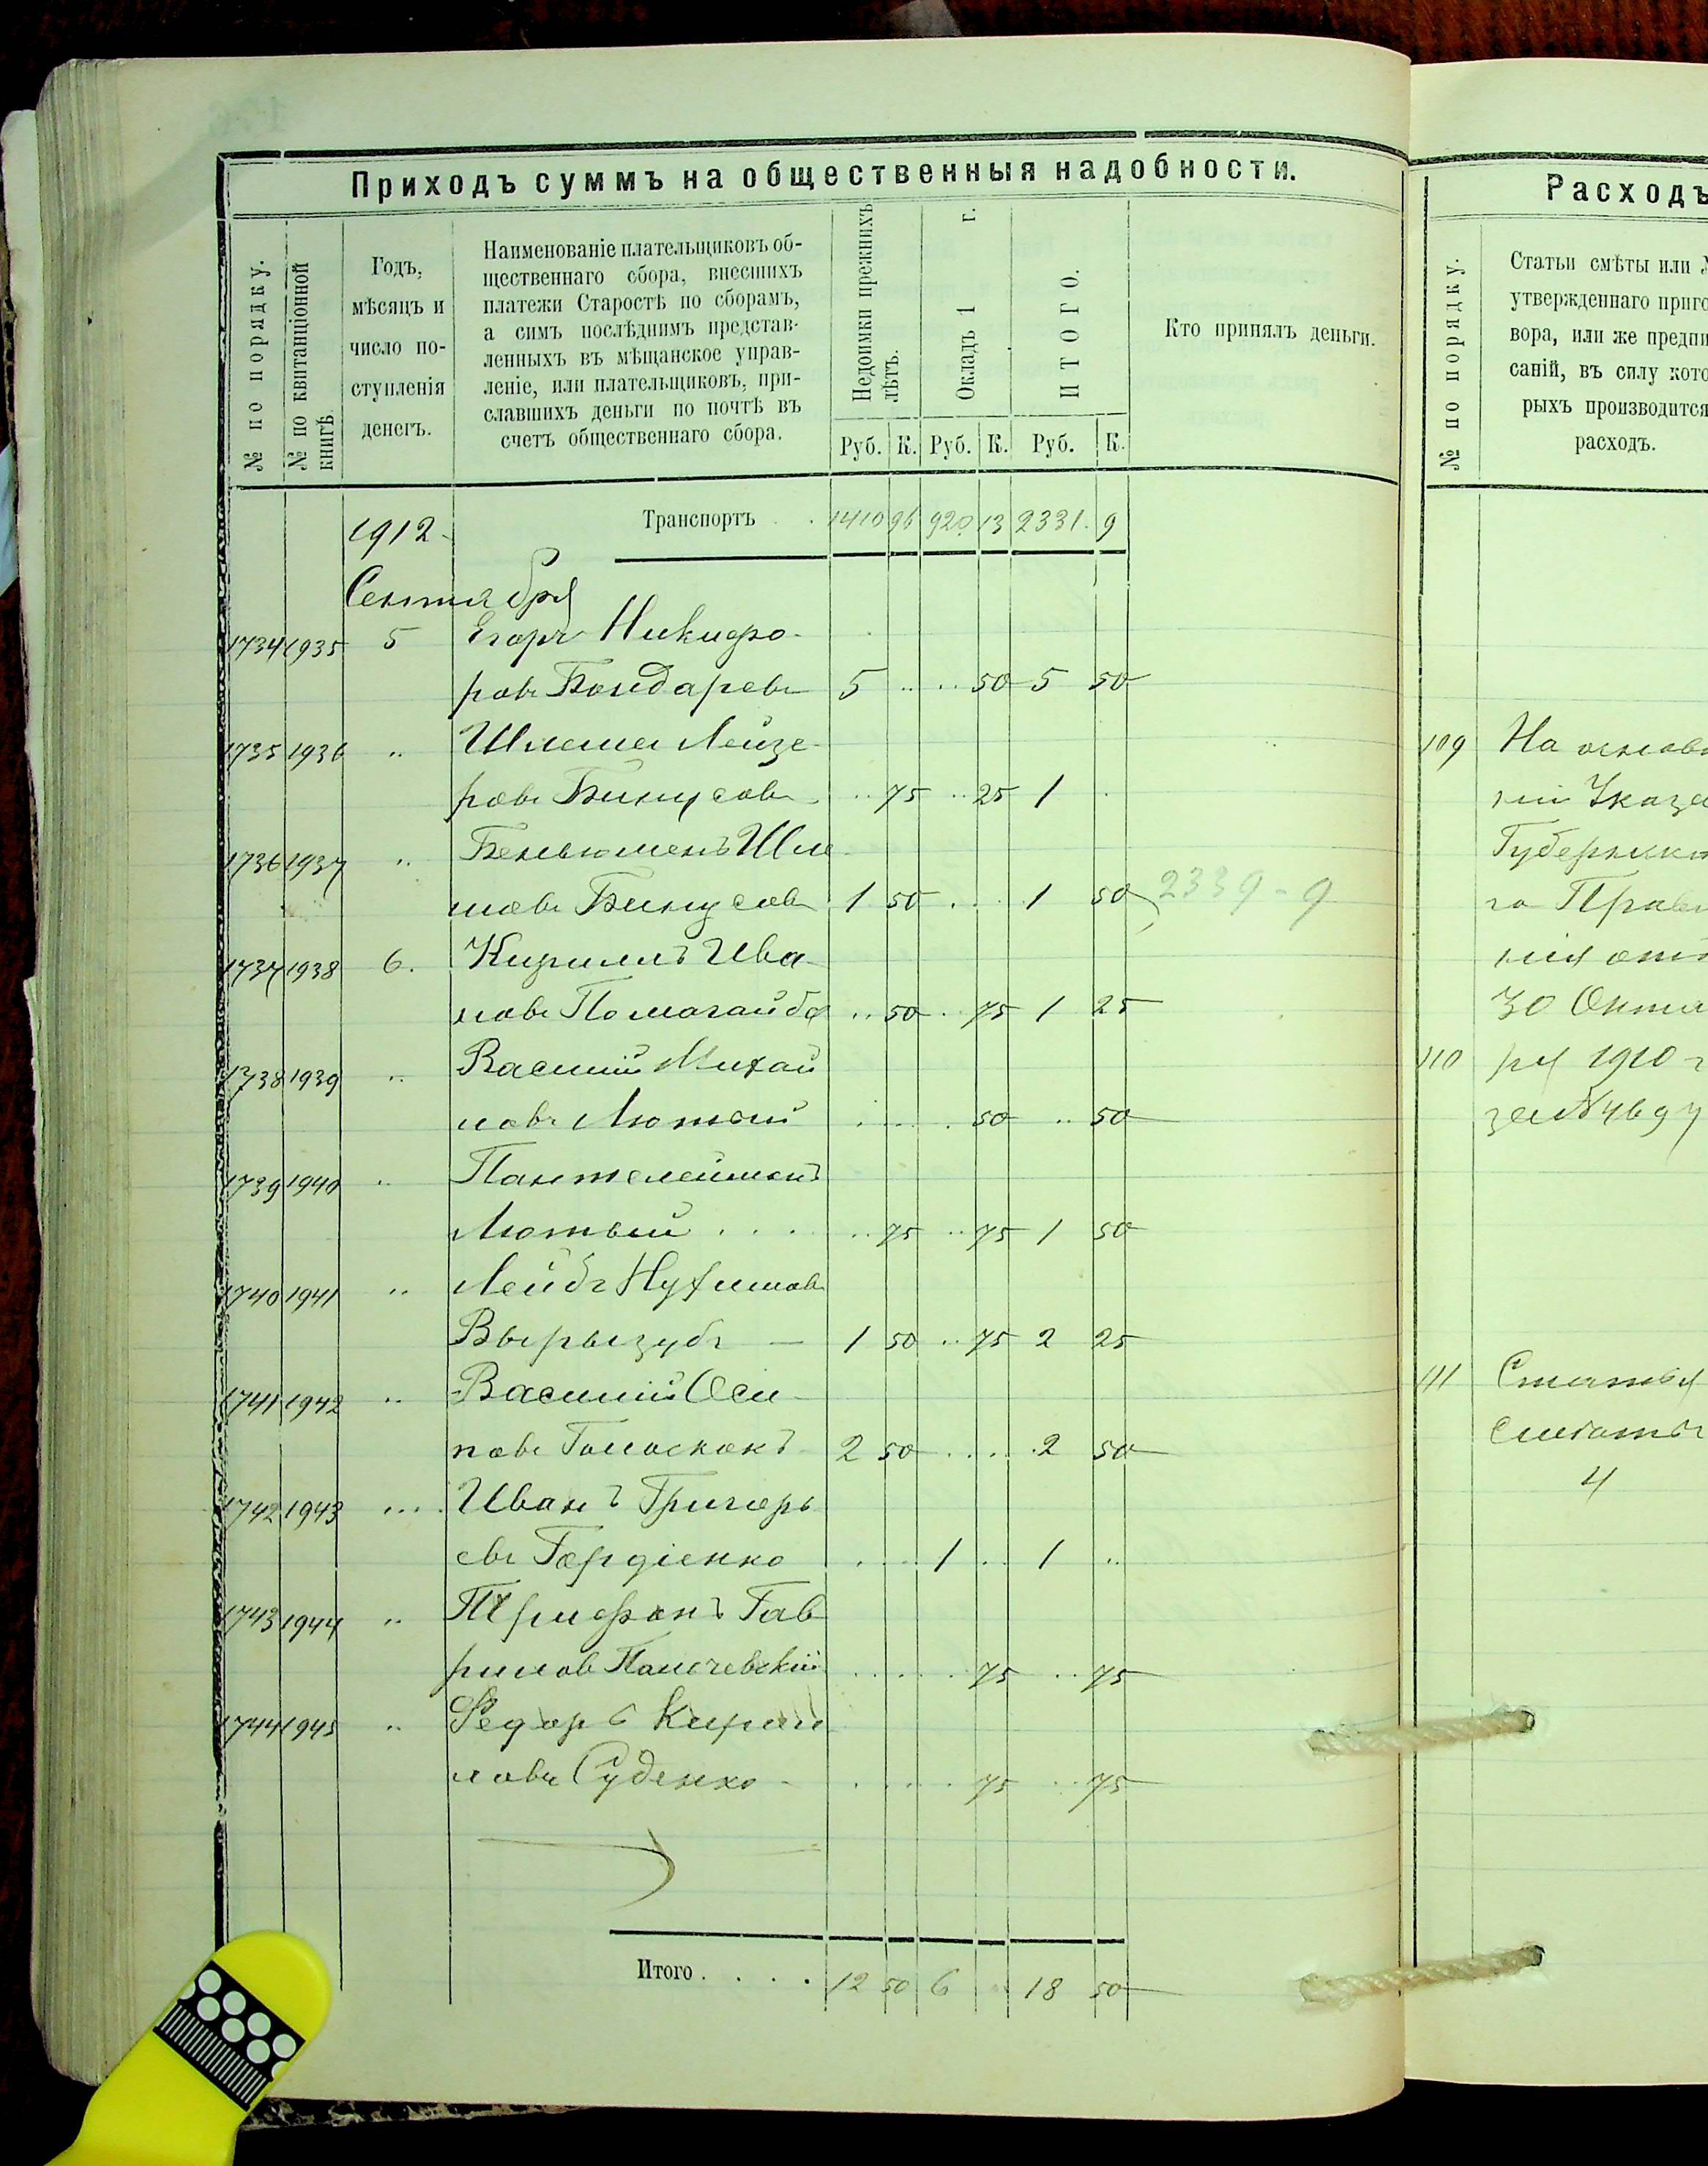 Приходъ суммъ на общественныя надобности.
№ по порядку.
№ по квитанціонной книгѣ.
Годъ,
мѣсяцъ и
число по-
ступленія
денегъ.
Наименованіе плательщиковъ об-
щественнаго сбора, внесшихъ
платежи Старостѣ по сборамъ,
а симъ послѣднимъ представ-
ленныхъ въ мѣщанское управ-
леніе, или плательщиковъ, при-
славшихъ деньги по почтѣ въ
счетъ общественнаго сбора.
Недоимки прежнихъ
лѣтъ.
Окладъ 1 г.
ИТОГО.
Руб. К. Руб. К. Руб. К.
Кто принялъ деньги.
1912 Транспортъ . . 1410 96 920 13 2331 9
Сентября
1734 1935 5 Егоръ Никифо-
ровъ Бондаревъ 5 .. .. 50 5 50
1735 1936 .. Шлема Лейзе-
ровъ Бинусовъ .. 75 .. 25 1 .
1736 1937 .. Беньюменъ Шле
мовъ Бинусовъ 1 50 . . . 1 50 2339 - 9
1737 1938 6. Кириллъ Ива-
новъ Помагайба .. 50 .. 75 1 25
1738 1939 .. Василій Михай
ловъ Лютый . . . . 50 .. 50
1739 1940 .. Пантелеймонъ
Лютый . . . .. 75 .. 75 1 50
1740 1941 .. Лейбъ Нухимовъ
Вырызубъ — 1 50 .. 75 2 25
1741 1942 .. Василій Оси-
повъ Голоскокъ 2 50 . . . . 2 50
1742 1943 ... Иванъ Григорь
евъ Гордіенко . . . 1 .. 1 ..
1743 1944 .. Трифонъ Гав
риловъ Пальчевскій . . . . 75 .. 75
1744 1945 .. Федоръ Кирил
ловъ Суденко - . . . . 75 .. 75
Итого . . . . . 12 50 6 18 50
Расходъ
№ по порядку.
Статьи смѣты или
утвержденнаго приго
вора, или же предпи
саній, въ силу кото
рыхъ производится
расходъ.
109 На основ
ніи Указа
Губернск
го Правл
нія отъ
30 Октя
110 ря 1910 г
за № 4697
111 Статья
смѣты
4